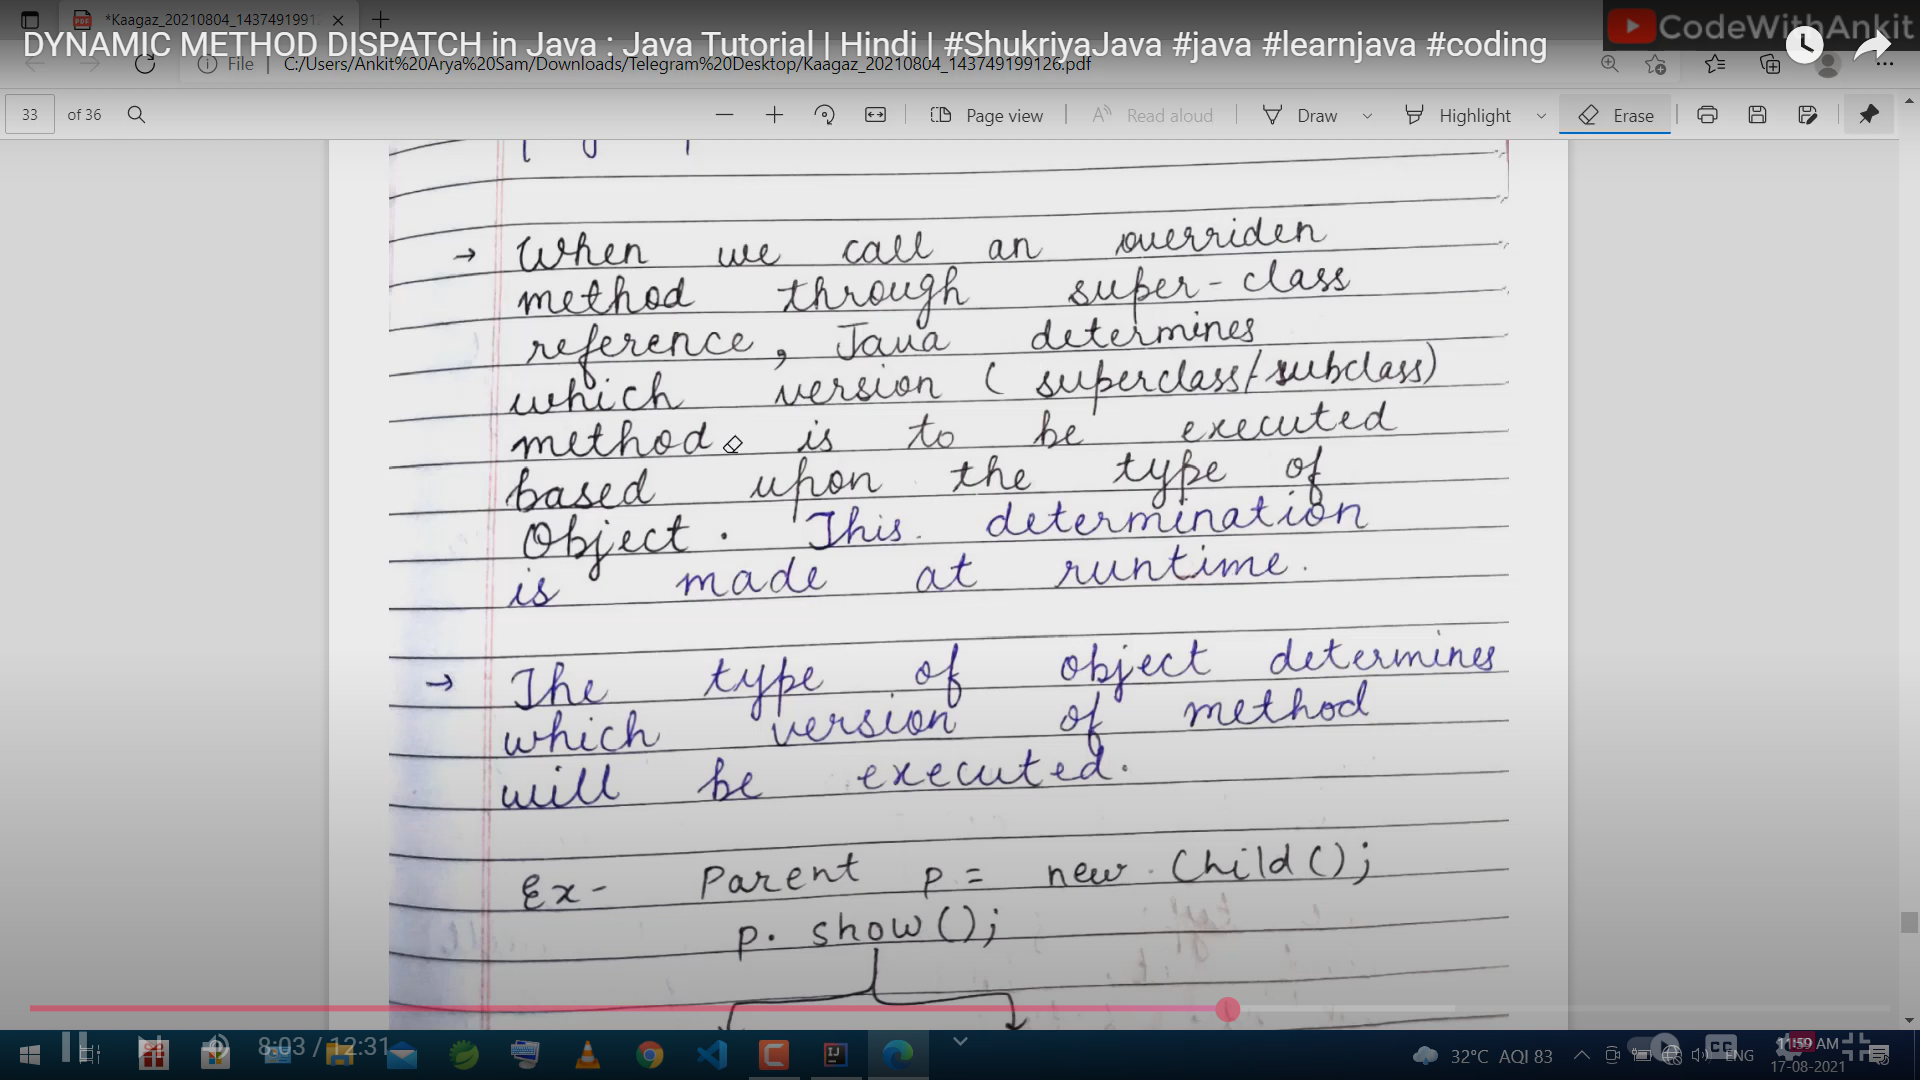 *Kaagaz_20210804_1437491991
CodeWithAnkit
DYNAMIC METHOD DISPATCH in Java : Java Tutorial | Hindi | #ShukriyaJava #java #learnjava #coding
File | C:/Users/Ankit%20Arya%20Sam/Downloads/Telegram%20Desktop/Kaagaz_20210804_143749199126.pdf
33 of 36 Page view Read aloud Draw Highlight Erase
→ When we call an overriden
method through super-class
reference, Java determines
which version ( superclass/subclass)
method is to be executed
based upon the type of
Object. This determination
is made at runtime.
→ The type of object determines
which version of method
will be executed.
Ex- Parent p = new Child();
p. show();
8:03 / 12:31
32°C AQI 83
CC
ENG
11:59 AM
17-08-2021